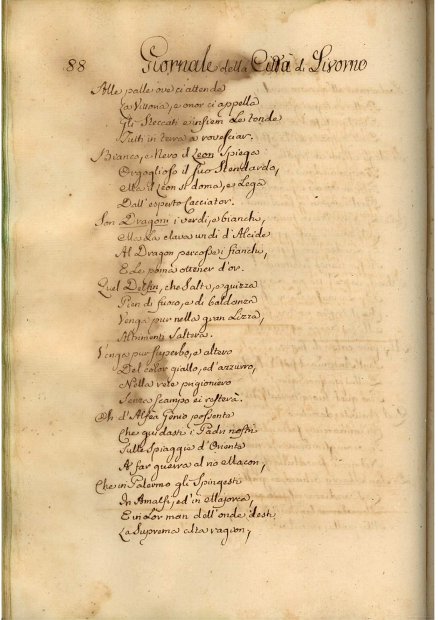 88 Giornale della Città di Livorno
Alle palle ove ci attende
La Vittoria, e onor ci appella
Gli Steccati e insiem le tende
Tutti in terra a rovesciar.
Bianco, e Nero il Leon Spiega
Orgoglioso il suo Stendardo,
Ma il Leon si doma, e Lega
Dall' esperto Cacciator.
Son Dragoni i verdi, e bianchi,
Ma La clava un dì d'Alcide
Al Dragon percosse i fianchi,
E Le poma ottener d'or.
Quel Delfin, che Salta, e guizza
Pien di fuoco, e di baldanza
Venga pur nella gran Lizza,
Altrimenti Salterà.
Venga pur superbo, e altero
Del color giallo, ed'azzurro,
Nella rete prigioniero
Senza Scampo ei resterà.
Oh d'Alfea Genio possente
Che guidasti i Padri nostri
Sulle Spiaggie d'Oriente
A far guerra al
Che in Palermo gli Spingesti
In Amalfi, ed'in Majorca,
E in Lor man dell'onde desti
La Suprema alta ragion,